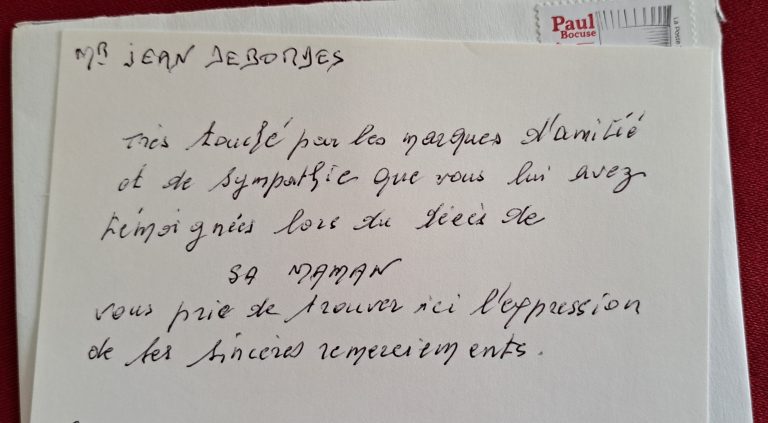 Paul
Bocuse
La Poste
MR JEAN DEBORDES
Très touché par les marques d'amitié
et de sympathie que vous lui avez
témoignées lors du décès de
SA MAMAN
vous prie de trouver ici l'expression
de ses sincères remerciements.